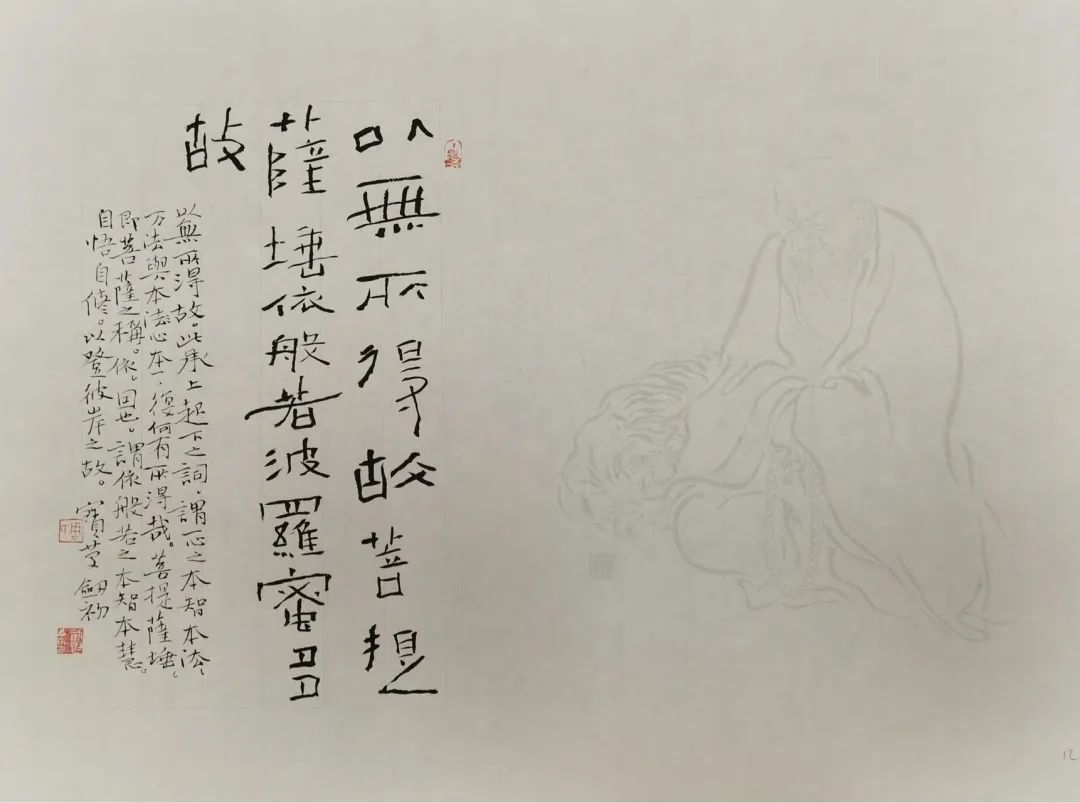 以無所得故菩提
薩埵依般若波羅蜜多
故
以無所得故。此承上起下之詞，謂之本智本法、
万法與本法心本一，復何有所得哉。菩提薩埵、
即菩薩之稱。依，也。謂依般若之本智本慧。
自悟自修。以登彼岸之故。寶 劍初
12